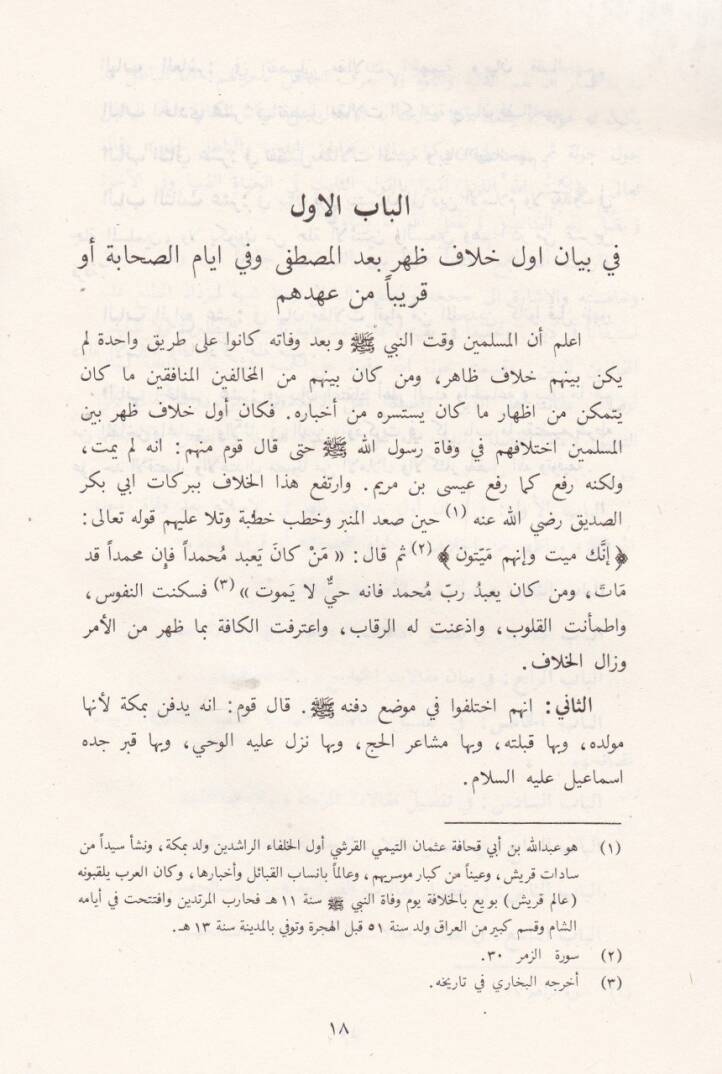 الباب الاول
في بيان اول خلاف ظهر بعد المصطفى وفي ايام الصحابة أو
قريباً من عهدهم
اعلم أن المسلمين وقت النبي ﷺ وبعد وفاته كانوا على طريق واحدة لم
يكن بينهم خلاف ظاهر، ومن كان بينهم من المخالفين المنافقين ما كان
يتمكن من اظهار ما كان يستسره من أخباره. فكان أول خلاف ظهر بين
المسلمين اختلافهم في وفاة رسول الله ﷺ حتى قال قوم منهم: انه لم يمت،
ولكنه رفع كما رفع عيسى بن مريم. وارتفع هذا الخلاف ببركات ابي بكر
الصديق رضي الله عنه (١) حين صعد المنبر وخطب خطبة وتلا عليهم قوله تعالى:
﴿إنَّك ميت وإنهم مَيّتون﴾ (٢) ثم قال: «مَنْ كانَ يَعبد مُحمداً فإن محمداً قد
مَاتَ، ومن كان يعبدُ ربّ مُحمد فانه حيٌّ لا يَموت» (٣) فسكنت النفوس،
واطمأنت القلوب، واذعنت له الرقاب، واعترفت الكافة بما ظهر من الأمر
وزال الخلاف.
الثاني: انهم اختلفوا في موضع دفنه ﷺ. قال قوم: انه يدفن بمكة لأنها
مولده، وبها قبلته، وبها مشاعر الحج، وبها نزل عليه الوحي، وبها قبر جده
اسماعيل عليه السلام.
(١) هو عبدالله بن أبي قحافة عثمان التيمي القرشي أول الخلفاء الراشدين ولد بمكة، ونشأ سيداً من
سادات قريش، وعيناً من كبار موسريهم، وعالماً بانساب القبائل وأخبارها، وكان العرب يلقبونه
(عالم قريش) بويع بالخلافة يوم وفاة النبي ﷺ سنة ١١ هـ فحارب المرتدين وافتتحت في أيامه
الشام وقسم كبير من العراق ولد سنة ٥١ قبل الهجرة وتوفي بالمدينة سنة ١٣ هـ.
(٢) سورة الزمر ٣٠.
(٣) أخرجه البخاري في تاريخه.
١٨